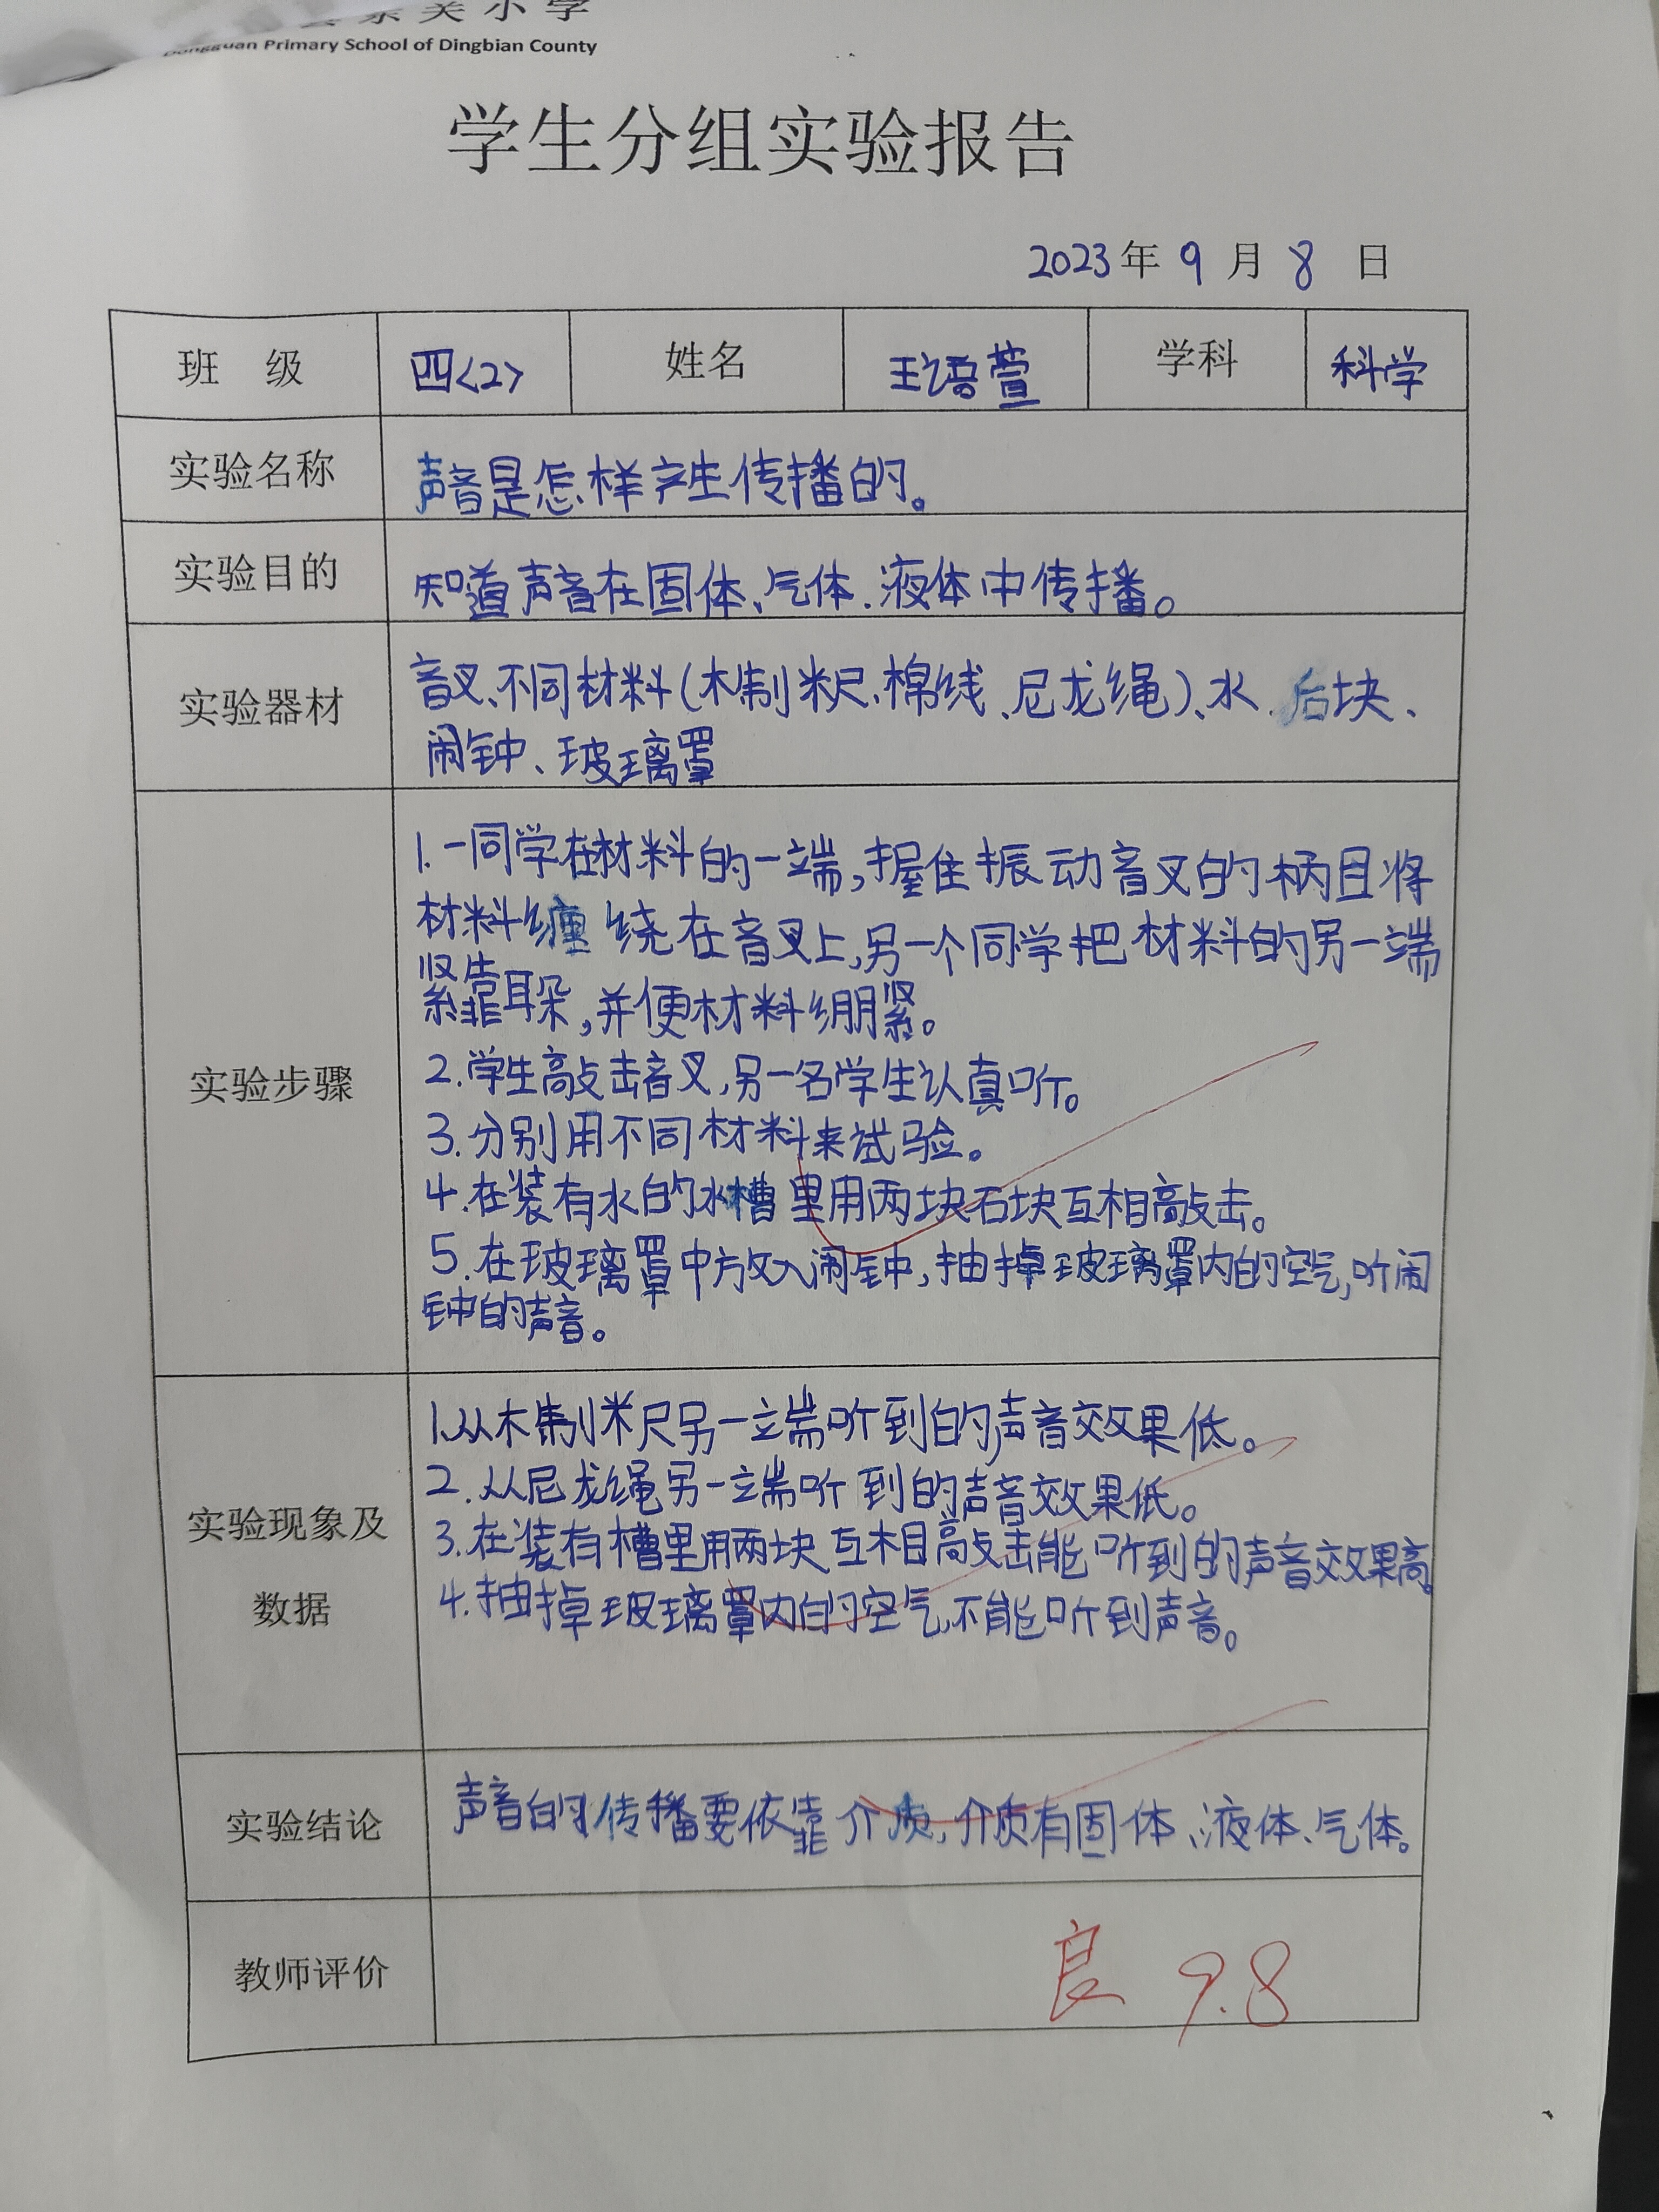 小学
Dongguan Primary School of Dingbian County
学生分组实验报告
2023年9月8日
班 级 四<2> 姓名 王语萱 学科 科学
实验名称 声音是怎样产生传播的。
实验目的 知道声音在固体、气体、液体中传播。
实验器材 音叉、不同材料(木制米尺、棉线、尼龙绳)、水、石块、
闹钟、玻璃罩
实验步骤
1.一同学在材料的一端,握住振动音叉的柄且将
材料缠绕在音叉上,另一个同学把材料的另一端
紧靠耳朵,并使材料绷紧。
2.学生敲击音叉,另一名学生认真听。
3.分别用不同材料来试验。
4.在装有水的水槽里用两块石块互相敲击。
5.在玻璃罩中放入闹钟,抽掉玻璃罩内的空气,听闹
钟的声音。
实验现象及
数据
1.从木制米尺另一端听到的声音效果低。
2.从尼龙绳另一端听到的声音效果低。
3.在装有槽里用两块互相敲击能听到的声音效果高。
4.抽掉玻璃罩内的空气,不能听到声音。
实验结论 声音的传播要依靠介质,介质有固体、液体、气体。
教师评价 良 9.8